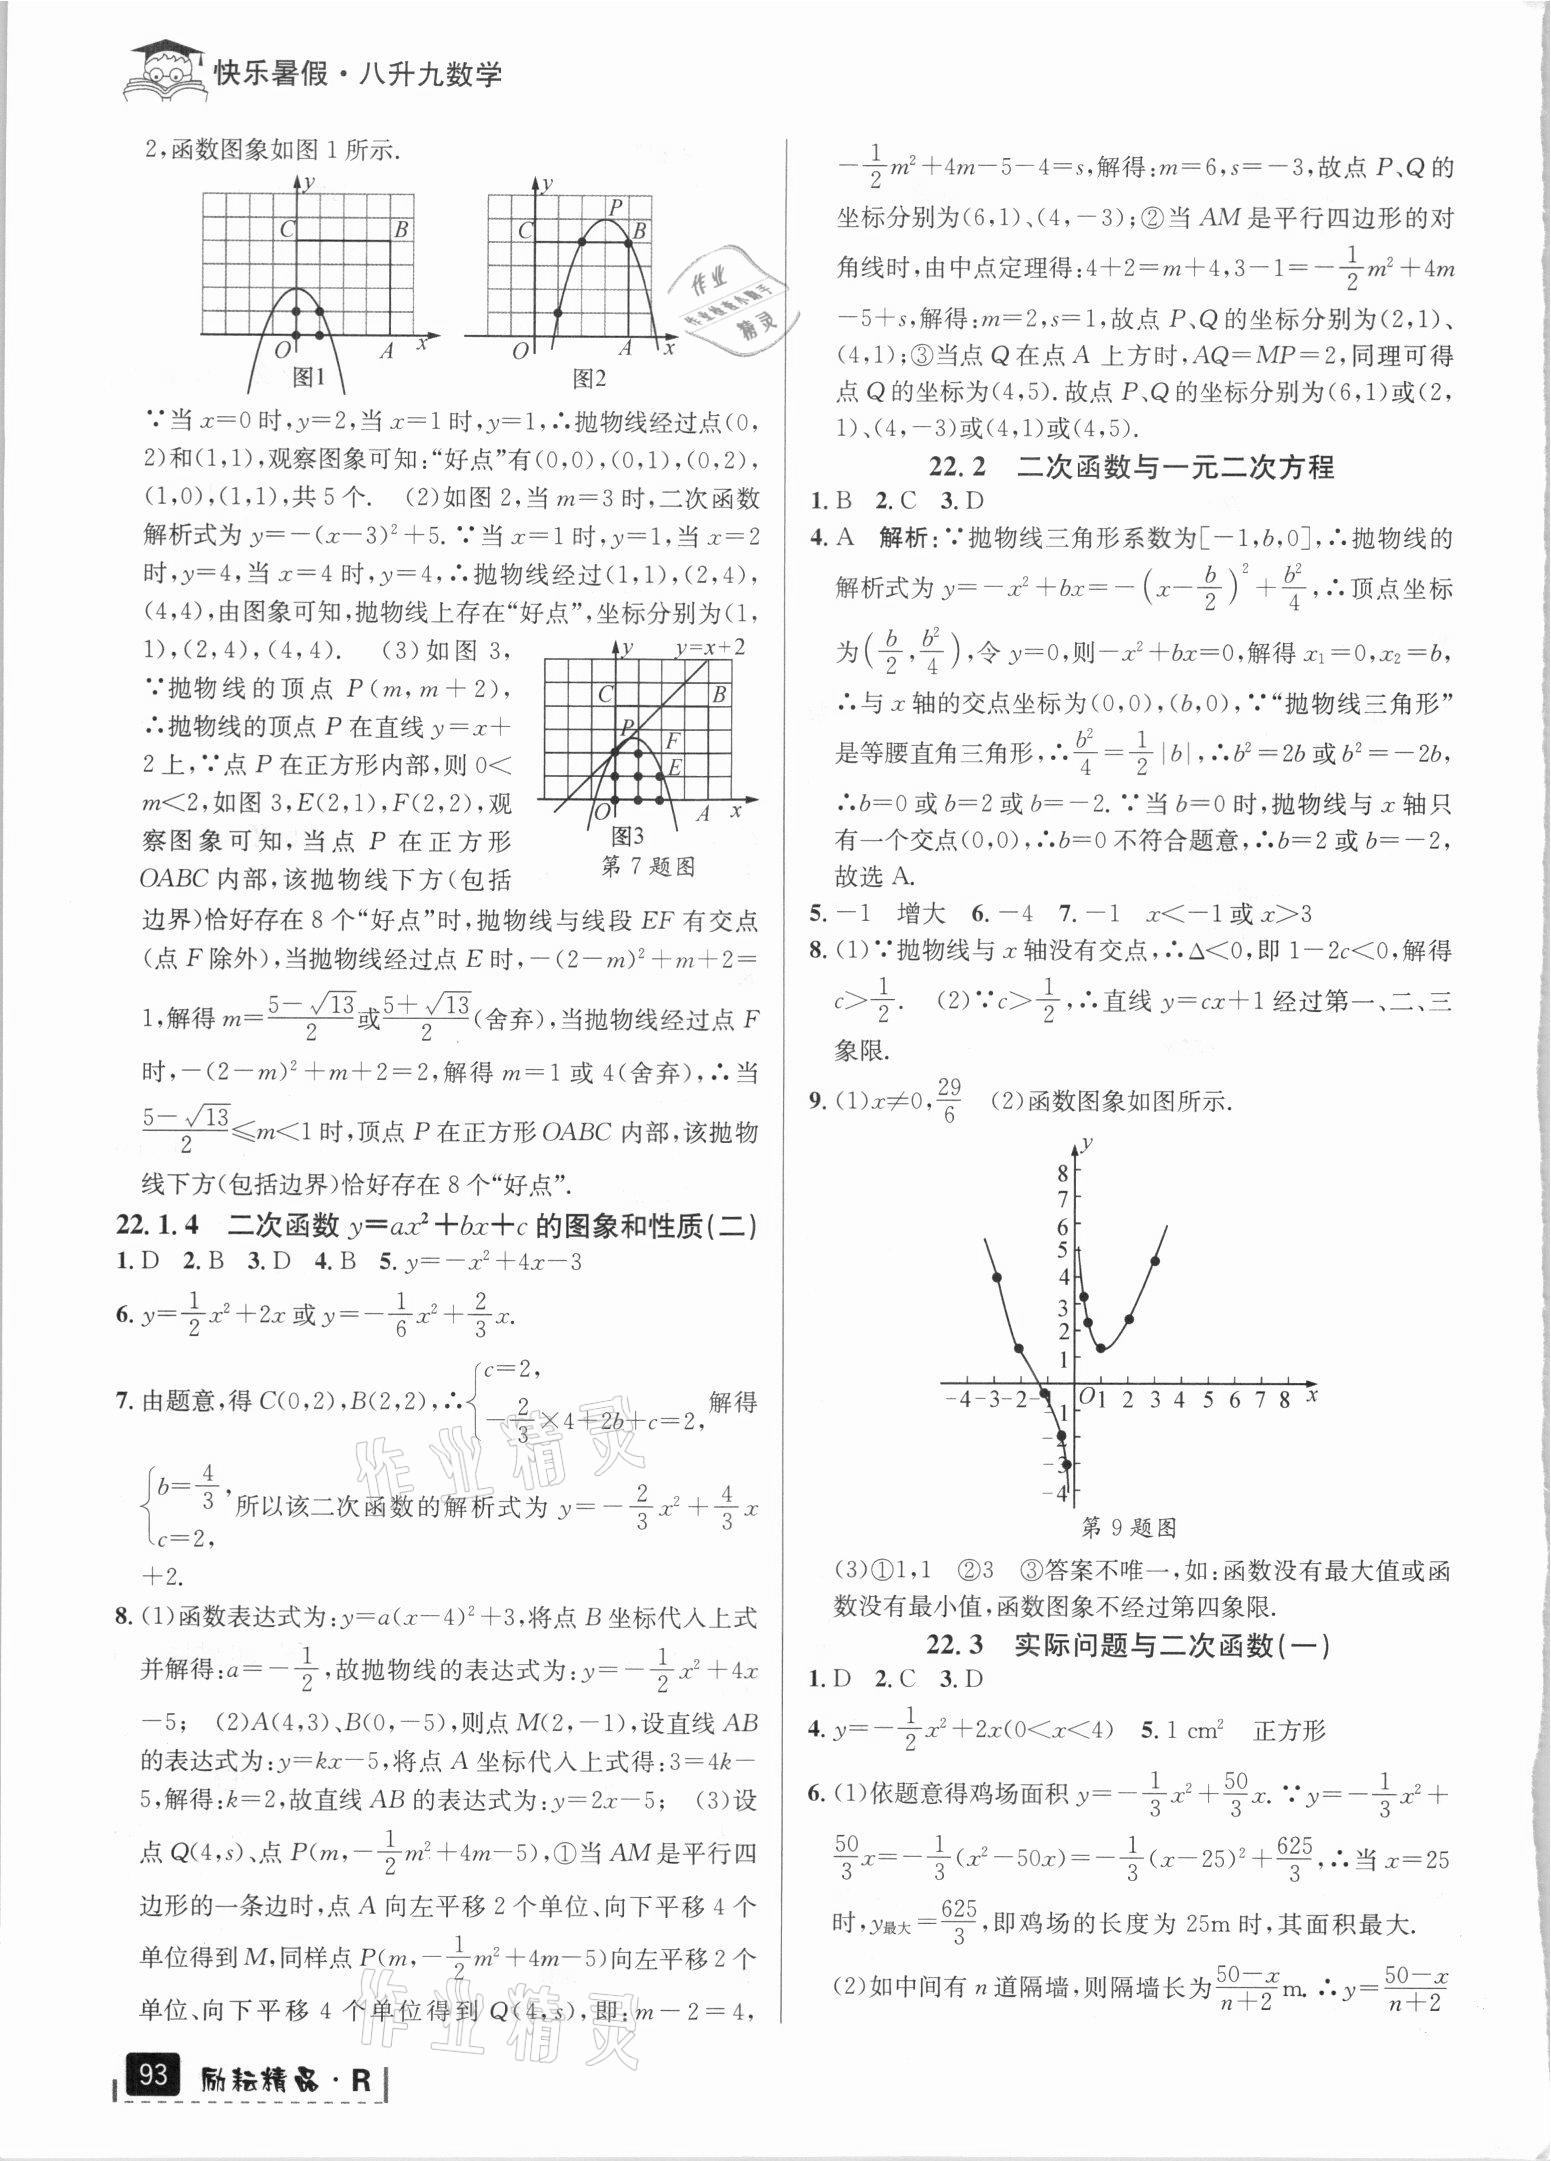 快乐暑假·八升九数学
2,函数图象如图1所示.
y C B O A x 图1
y P C B O A x 图2
∵当x=0时,y=2,当x=1时,y=1,∴抛物线经过点(0,
2)和(1,1),观察图象可知:“好点”有(0,0),(0,1),(0,2),
(1,0),(1,1),共5个. (2)如图2,当m=3时,二次函数
解析式为y=-(x-3)²+5.∵当x=1时,y=1,当x=2
时,y=4,当x=4时,y=4,∴抛物线经过(1,1),(2,4),
(4,4),由图象可知,抛物线上存在“好点”,坐标分别为(1,
1),(2,4),(4,4). (3)如图3,
∵抛物线的顶点P(m,m+2),
∴抛物线的顶点P在直线y=x+
2上,∵点P在正方形内部,则0<
m<2,如图3,E(2,1),F(2,2),观
察图象可知,当点P在正方形
OABC内部,该抛物线下方(包括
y y=x+2 C B P F E O A x
图3
第7题图
边界)恰好存在8个“好点”时,抛物线与线段EF有交点
(点F除外),当抛物线经过点E时,-(2-m)²+m+2=
1,解得m=(5-√13)/2或(5+√13)/2(舍弃),当抛物线经过点F
时,-(2-m)²+m+2=2,解得m=1或4(舍弃),∴当
(5-√13)/2≤m<1时,顶点P在正方形OABC内部,该抛物
线下方(包括边界)恰好存在8个“好点”.
22.1.4 二次函数y=ax²+bx+c的图象和性质(二)
1.D 2.B 3.D 4.B 5.y=-x²+4x-3
6.y=1/2x²+2x或y=-1/6x²+2/3x.
7.由题意,得C(0,2),B(2,2),∴{c=2, -2/3×4+2b+c=2,解得
{b=4/3, c=2,所以该二次函数的解析式为y=-2/3x²+4/3x
+2.
8.(1)函数表达式为:y=a(x-4)²+3,将点B坐标代入上式
并解得:a=-1/2,故抛物线的表达式为:y=-1/2x²+4x
-5; (2)A(4,3)、B(0,-5),则点M(2,-1),设直线AB
的表达式为:y=kx-5,将点A坐标代入上式得:3=4k-
5,解得:k=2,故直线AB的表达式为:y=2x-5; (3)设
点Q(4,s)、点P(m,-1/2m²+4m-5),①当AM是平行四
边形的一条边时,点A向左平移2个单位、向下平移4个
单位得到M,同样点P(m,-1/2m²+4m-5)向左平移2个
单位、向下平移4个单位得到Q(4,s),即:m-2=4,
-1/2m²+4m-5-4=s,解得:m=6,s=-3,故点P、Q的
坐标分别为(6,1)、(4,-3);②当AM是平行四边形的对
角线时,由中点定理得:4+2=m+4,3-1=-1/2m²+4m
-5+s,解得:m=2,s=1,故点P、Q的坐标分别为(2,1)、
(4,1);③当点Q在点A上方时,AQ=MP=2,同理可得
点Q的坐标为(4,5).故点P、Q的坐标分别为(6,1)或(2,
1)、(4,-3)或(4,1)或(4,5).
22.2 二次函数与一元二次方程
1.B 2.C 3.D
4.A 解析:∵抛物线三角形系数为[-1,b,0],∴抛物线的
解析式为y=-x²+bx=-(x-b/2)²+b²/4,∴顶点坐标
为(b/2,b²/4),令y=0,则-x²+bx=0,解得x₁=0,x₂=b,
∴与x轴的交点坐标为(0,0),(b,0),∵“抛物线三角形”
是等腰直角三角形,∴b²/4=1/2|b|,∴b²=2b或b²=-2b,
∴b=0或b=2或b=-2.∵当b=0时,抛物线与x轴只
有一个交点(0,0),∴b=0不符合题意,∴b=2或b=-2,
故选A.
5.-1 增大 6.-4 7.-1 x<-1或x>3
8.(1)∵抛物线与x轴没有交点,∴Δ<0,即1-2c<0,解得
c>1/2. (2)∵c>1/2,∴直线y=cx+1经过第一、二、三
象限.
9.(1)x≠0,29/6 (2)函数图象如图所示.
y
8
7
6
5
4
3
2
1
-4 -3 -2 -1 O 1 2 3 4 5 6 7 8 x
-1
-2
-3
-4
第9题图
(3)①1,1 ②3 ③答案不唯一,如:函数没有最大值或函
数没有最小值,函数图象不经过第四象限.
22.3 实际问题与二次函数(一)
1.D 2.C 3.D
4.y=-1/2x²+2x(0<x<4) 5.1 cm² 正方形
6.(1)依题意得鸡场面积y=-1/3x²+50/3x.∵y=-1/3x²+
50/3x=-1/3(x²-50x)=-1/3(x-25)²+625/3,∴当x=25
时,y最大=625/3,即鸡场的长度为25m时,其面积最大.
(2)如中间有n道隔墙,则隔墙长为(50-x)/(n+2)m.∴y=(50-x)/(n+2)
93 励耘精品·R
作业
作业检查小助手
精灵
作业精灵
作业精灵